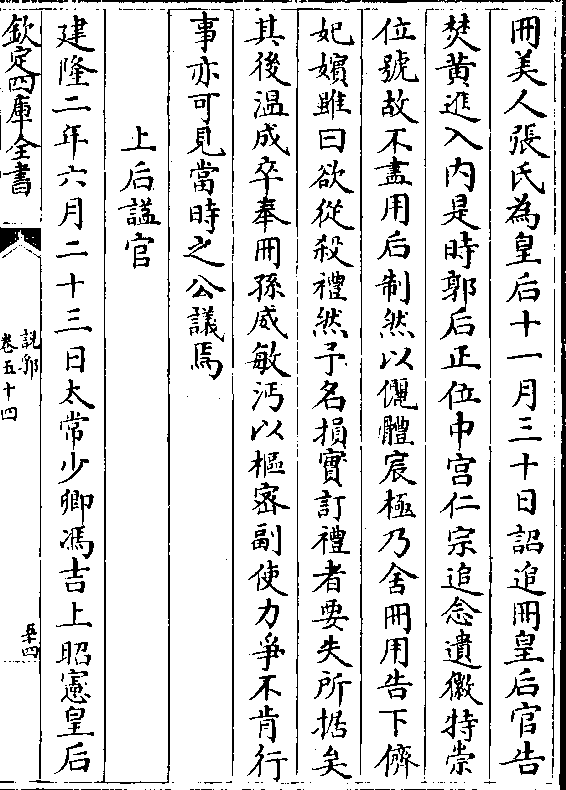 冊美人張氏為皇后十一月三十日詔追冊皇后官告
焚黃進入内是時郭后正位中宫仁宗追念遺徽特崇
位號故不盡用后制然以儷體宸極乃舍冊用告下儕
妃嬪雖曰欲從殺禮然予名損實訂禮者要失所據矣
其後温成卒奉冊孫威敏沔以樞宻副使力爭不肯行
事亦可見當時之公議焉
上后諡官
建隆二年六月二十三日太常少卿馮吉上昭憲皇后
欽定四庫全書
說郛
卷五十四
五十四